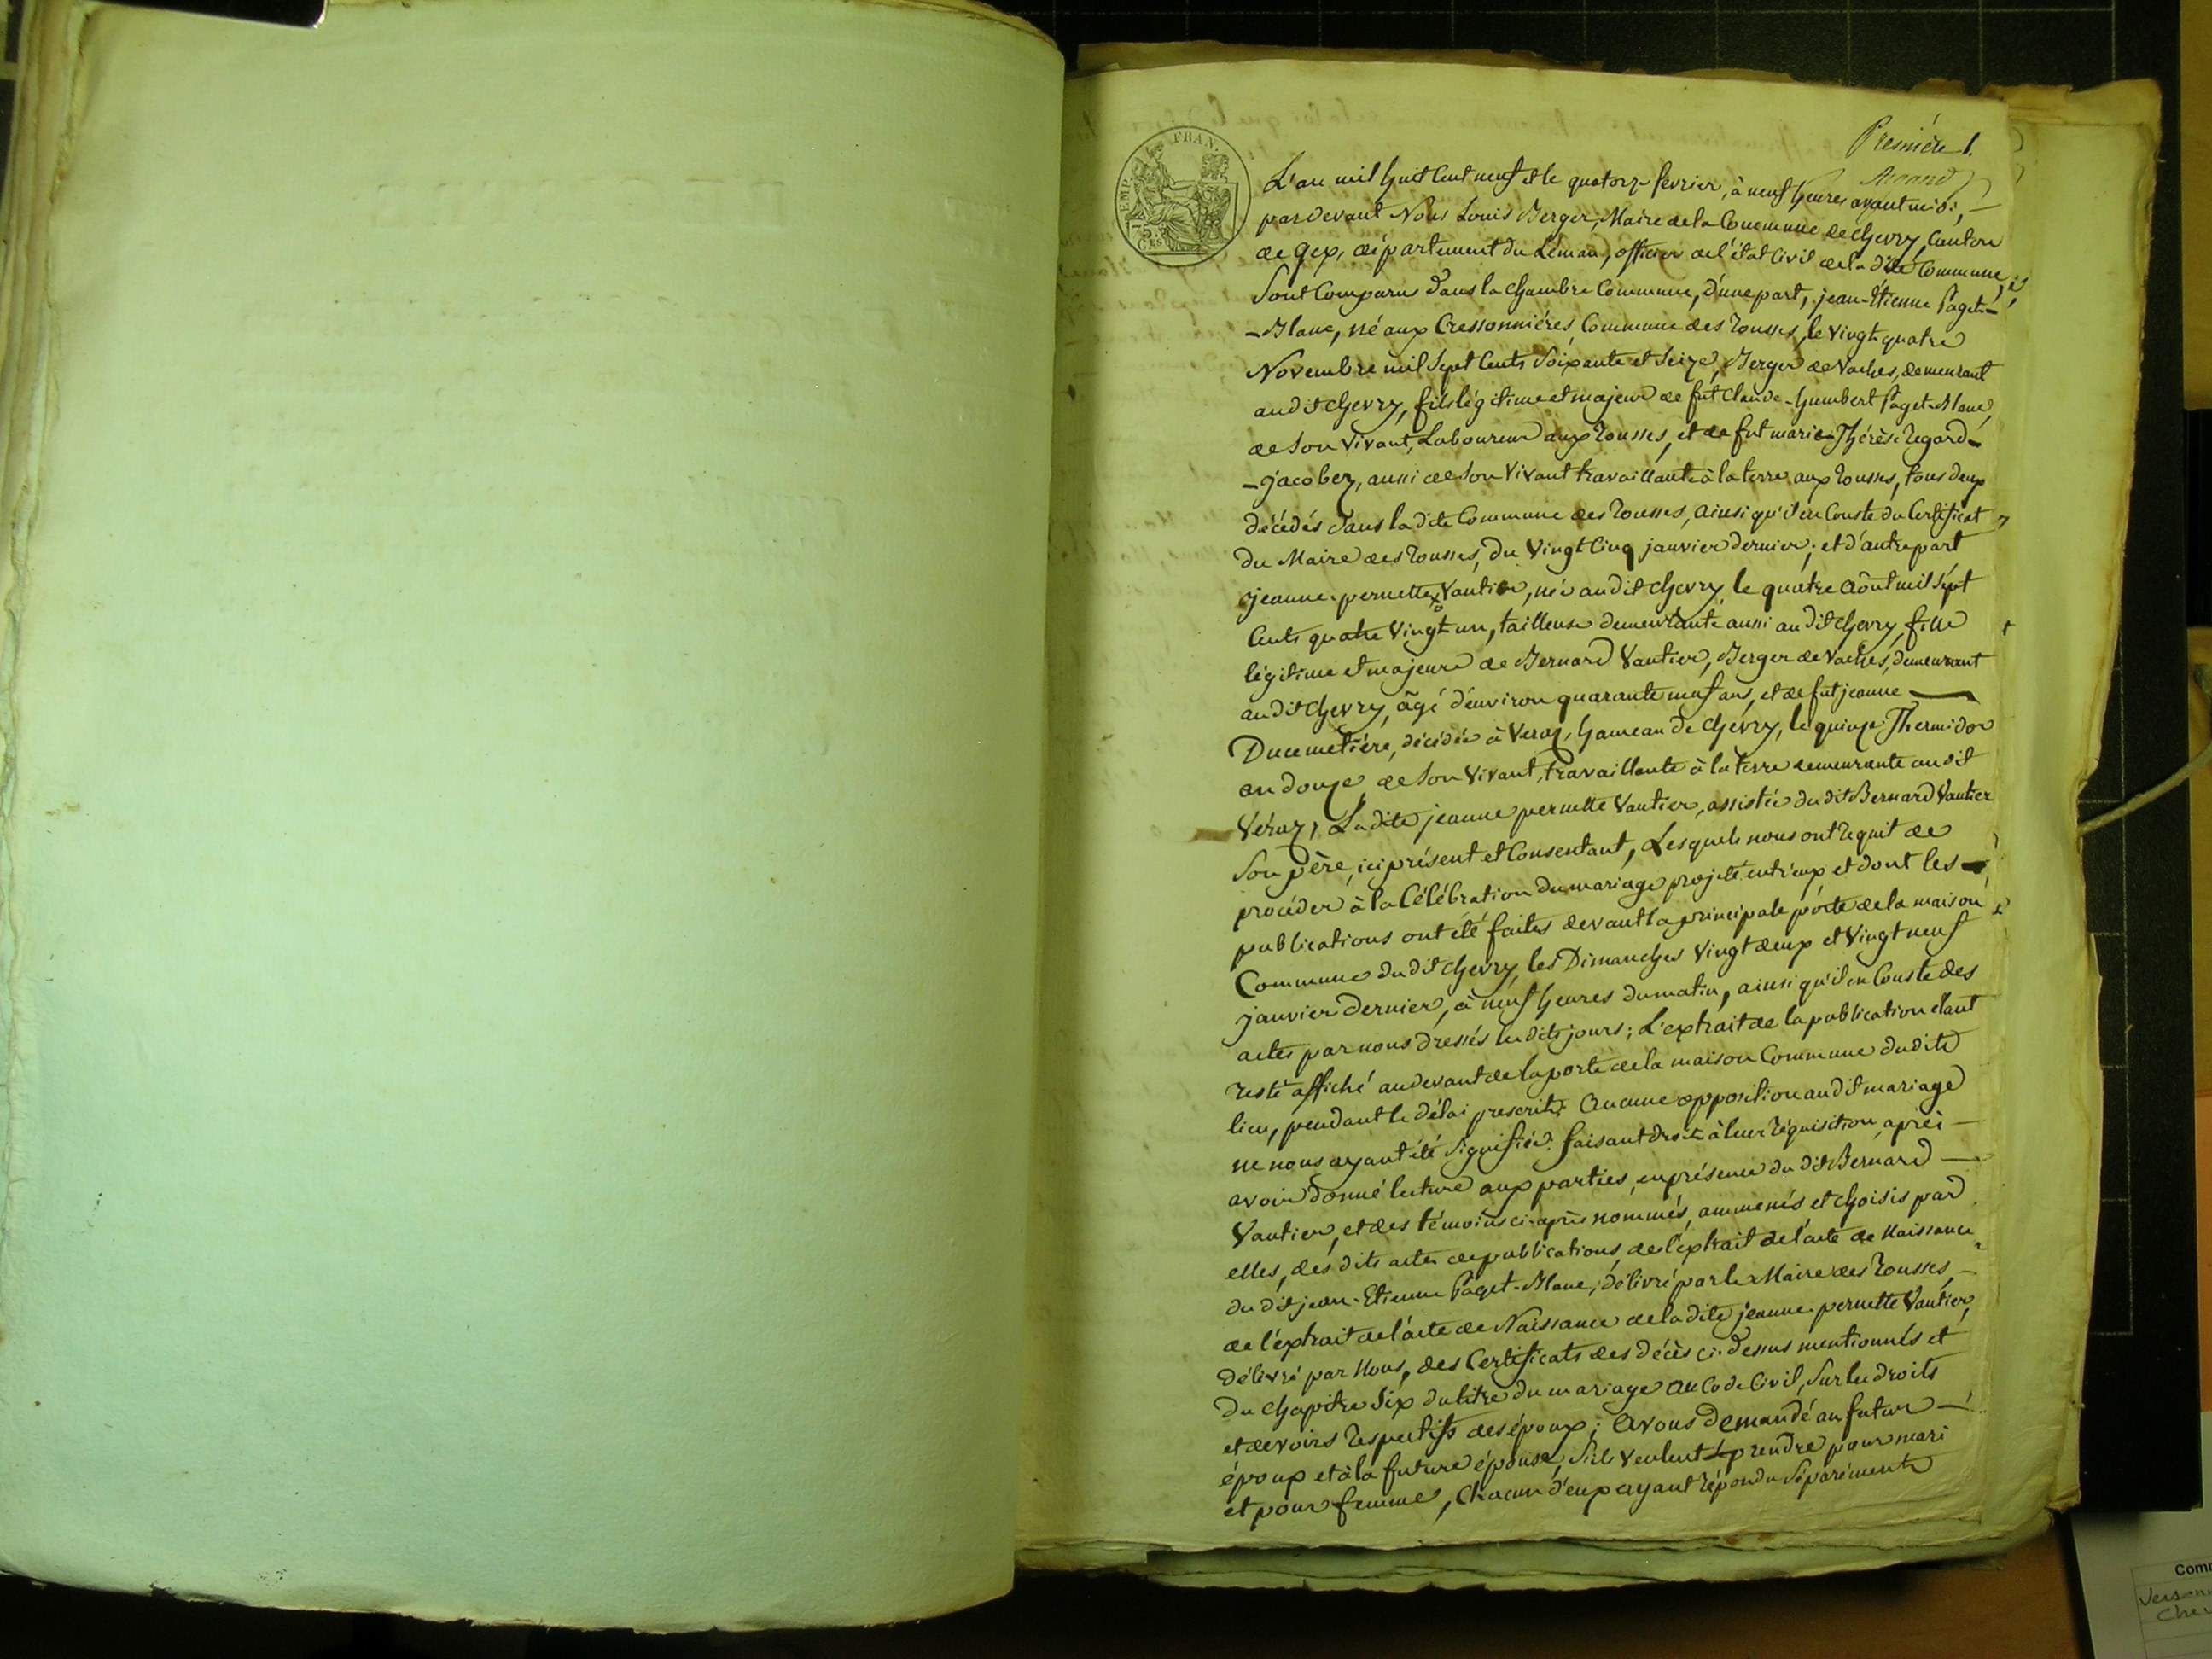 Première 1.
EMP. FRAN.
75.
CES
L'an mil huit cent neuf et le quatorze février, à neuf heures avant midi,
pardevant Nous Louis Berger, Maire de la Commune de Chevry, Canton
de Gex, département du Léman, officier de l'état Civil de la dite Commune,
Sont Comparus dans la chambre Commune, d'une part, jean-Étienne Paget-
-Blanc, né aux Cressonnières, Commune des rousses, le vingt quatre
Novembre mil Sept Cents Soixante et Seize, Berger de Vaches, demeurant
audit Chevry, fils légitime et majeur de fut Claude-humbert Paget-Blanc,
de Son Vivant, Laboureur aux rousses, et de fut marie-Thérèse regard-
-jacobez, aussi de Son Vivant travaillante à la terre aux rousses, tous deux
décédés dans la dite Commune des rousses, ainsi qu'il en Conste du Certificat
du Maire des rousses, du Vingt Cinq janvier dernier; et d'autre part
jeanne-pernette Vautier, née audit Chevry, le quatre août mil Sept
Cents quatre Vingt un, tailleuse demeurante aussi audit Chevry, fille
légitime et majeure de Bernard Vautier, Berger de Vaches, demeurant
audit Chevry, âgé d'environ quarante neuf ans, et de fut jeanne
Ducimetière, décédée à Veraz, hameau de Chevry, le quinze Thermidor
an douze, de Son Vivant, travaillante à la terre demeurante audit
Véraz, La dite jeanne pernette Vautier, assistée du dit Bernard Vautier
Son père, ici présent et Consentant, Lesquels nous ont requit de
procéder à la Célébration du mariage projeté entr'eux et dont les
publications ont été faites devant la principale porte de la maison
Commune du dit Chevry, les Dimanches Vingt deux et Vingt neuf
janvier dernier, à neuf heures du matin, ainsi qu'il en Conste des
actes par nous dressés les dits jours; L'extrait de la publication étant
resté affiché au devant de la porte de la maison Commune dudit
lieu, pendant le délai prescrit; Aucune opposition audit mariage
ne nous ayant été Signifiée. faisant droit à leur réquisition, après
avoir donné lecture aux parties, en présence du dit Bernard
Vautier, et des témoins ci-après nommés, ammenés et choisis par
elles, des dits actes de publications, de l'extrait de l'acte de Naissance
du dit jean-Etienne Paget-Blanc, délivré par le Maire des rousses,
de l'extrait de l'acte de Naissance de la dite jeanne pernette Vautier,
délivré par Nous, des Certificats des décès ci-dessus mentionnés et
du Chapitre Six du titre du mariage au Code Civil, Sur les droits
et devoirs respectifs des époux; Avons demandé au futur
époux et à la future épouse, S'ils veulent se prendre pour mari
et pour femme, Chacun d'eux ayant répondu Séparément